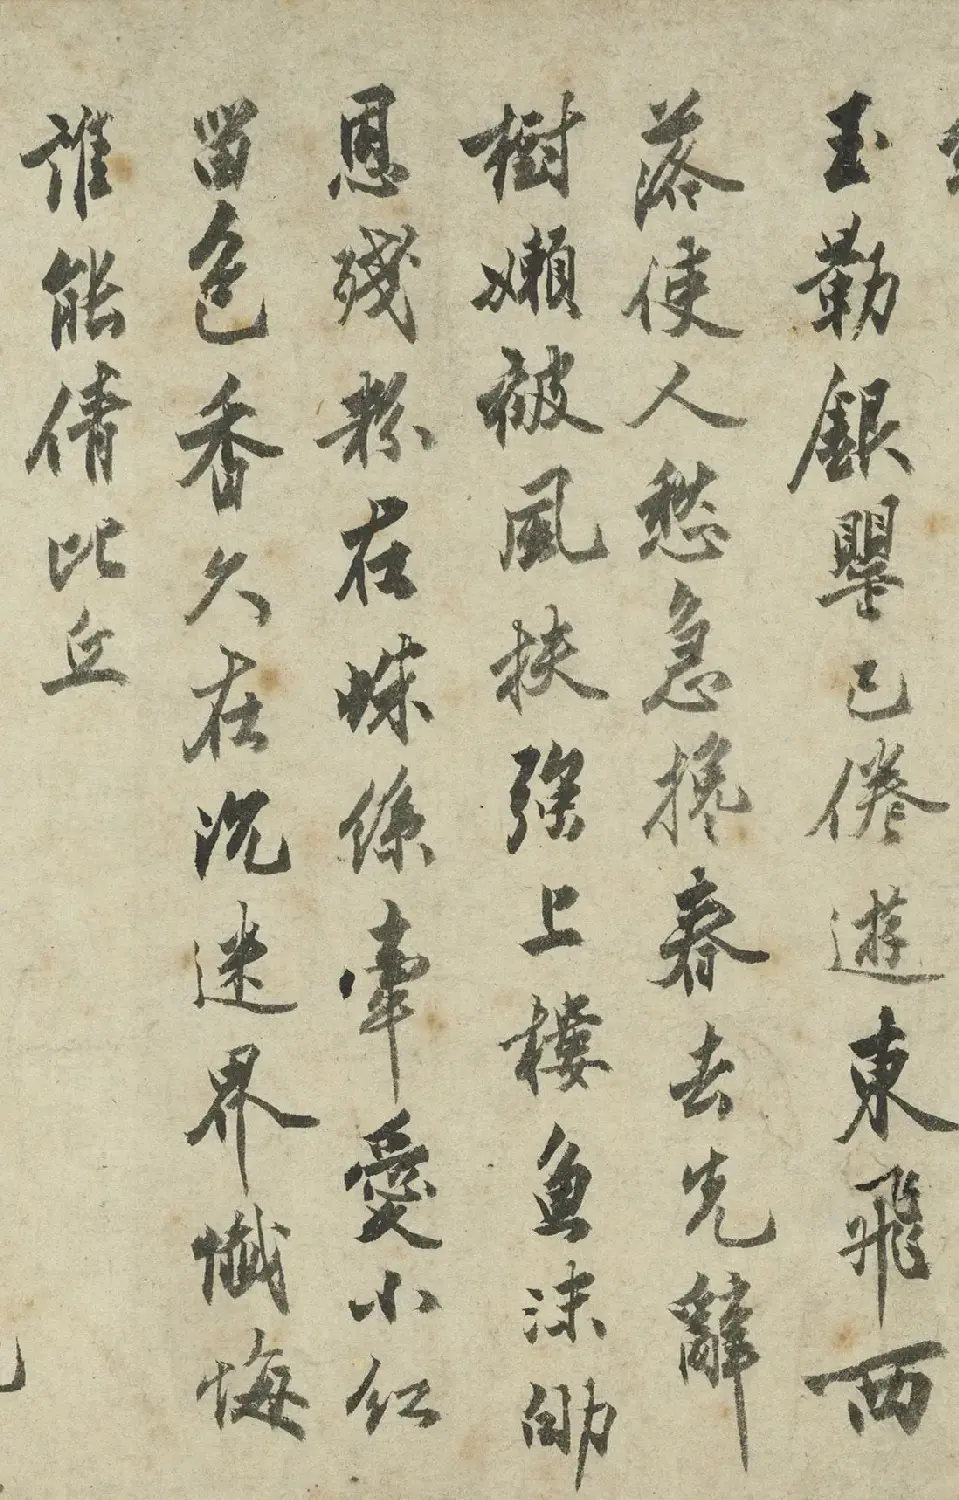 玉勒銀罌已倦遊東飛西
落使人愁急攙春去先辭
樹懶被風扶強上樓魚沫劬
恩殘粉在蛛絲牽愛小紅
留色香久在沉迷界懺悔
誰能倩比丘